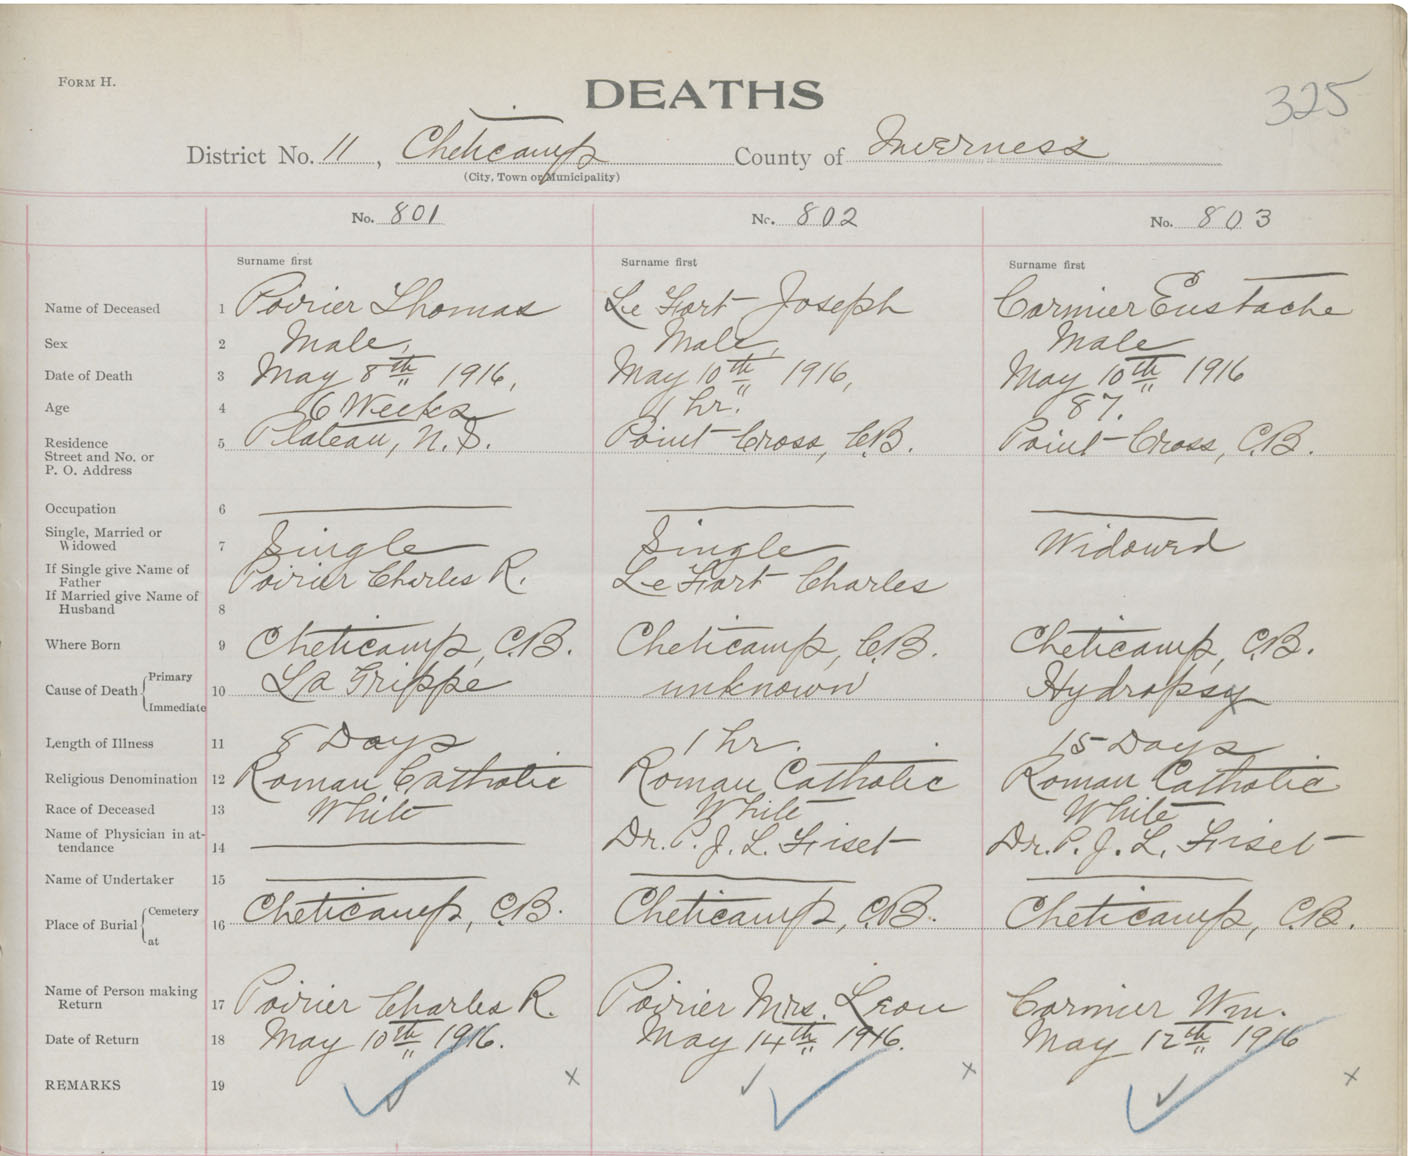 FORM H.
DEATHS
325
District No. 11, Cheticamp County of Inverness
(City, Town or Municipality)
No. 801 No. 802 No. 803
Surname first Surname first Surname first
Name of Deceased 1 Poirier Thomas Le Fort Joseph Cormier Eustache
Sex 2 Male, Male, Male
Date of Death 3 May 8th 1916, May 10th 1916, May 10th 1916
Age 4 6 Weeks 1 hr. 87.
Residence 5 Plateau, N.S. Point Cross, C.B. Point Cross, C.B.
Street and No. or
P. O. Address
Occupation 6
Single, Married or
Widowed 7 Single Single Widowed
If Single give Name of
Father Poirier Charles R. Le Fort Charles
If Married give Name of
Husband 8
Where Born 9 Cheticamp, C.B. Cheticamp, C.B. Cheticamp, C.B.
Cause of Death Primary Immediate 10 La Grippe unknown Hydropsy
Length of Illness 11 8 Days 1 hr. 15 Days
Religious Denomination 12 Roman Catholic Roman Catholic Roman Catholic
Race of Deceased 13 White White White
Name of Physician in at-
tendance 14 Dr. P. J. L. Fiset Dr. P. J. L. Fiset
Name of Undertaker 15
Place of Burial Cemetery at 16 Cheticamp, C.B. Cheticamp, C.B. Cheticamp, C.B.
Name of Person making
Return 17 Poirier Charles R. Poirier Mrs. Leon Cormier Wm.
Date of Return 18 May 10th 1916. May 14th 1916. May 12th 1916
REMARKS 19 x x x